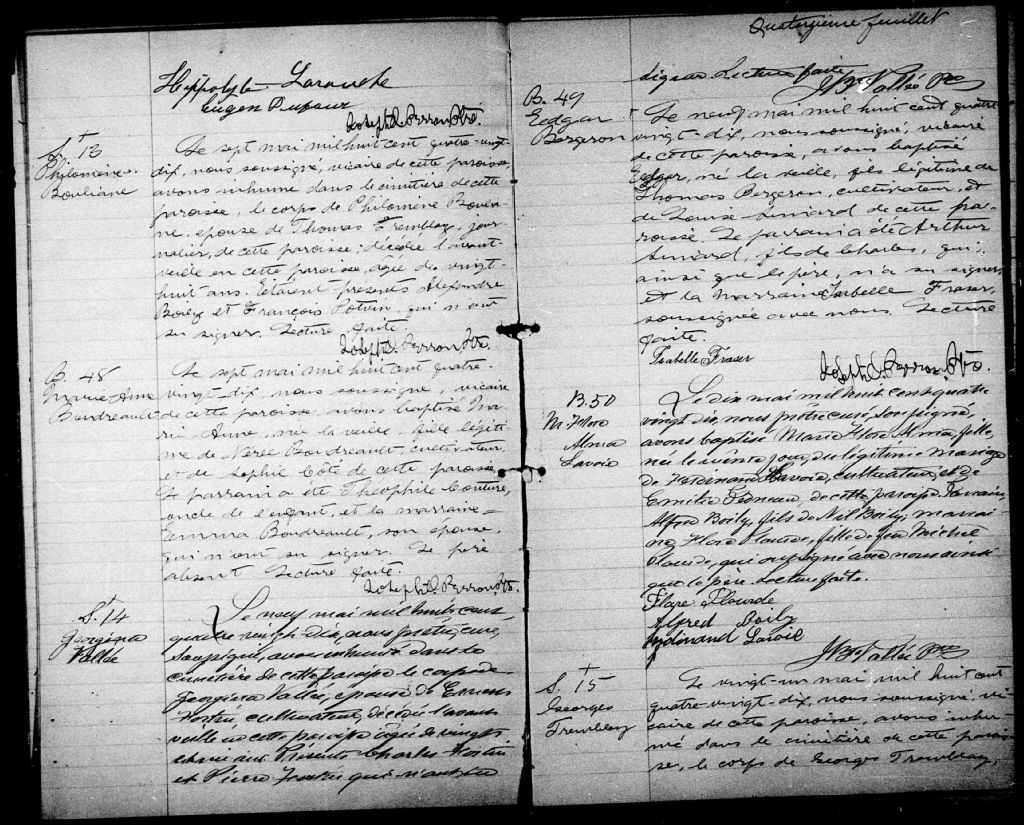 Hippolyte Larouche
Eugène Dufour
Joseph O. Perron Ptre.
S. 13
Philomène
Bouliane
Le sept mai mil huit cent quatre-vingt-
dix, nous soussigné, vicaire de cette paroisse,
avons inhumé dans le cimetière de cette
paroisse, le corps de Philomène Boulia-
ne, épouse de Thomas Tremblay, jour-
nalier, de cette paroisse; décédée l'avant-
veille en cette paroisse, âgée de vingt-
huit ans. Étaient présents Alexandre
Boily et François Potvin, qui n'ont
su signer. Lecture faite.
Joseph O. Perron Ptre.
B. 48
Marie Anne
Boudreault
Le sept mai mil huit cent quatre-
vingt-dix, nous soussigné, vicaire
de cette paroisse, avons baptisé Ma-
rie Anne, née la veille, fille légiti-
me de Nérée Boudreault, cultivateur,
et de Sophie Côté de cette paroisse.
Le parrain a été Théophile Couture,
oncle de l'enfant, et la marraine
Emma Boudreault, son épouse,
qui n'ont su signer. Le père
absent. Lecture faite.
Joseph O. Perron, Ptre.
S. 14
Georgina
Vallée
Le neuf mai mil huit cent
quatre vingt-dix, nous prêtre, curé,
soussigné, avons inhumé dans le
cimetière de cette paroisse le corps de
Georgina Vallée, épouse de
Fortin, cultivateur, décédée l'avant
veille en cette paroisse âgée de vingt-
ans. Présents Charles Fortin
et Pierre qui n'ont su
Quatorzième feuillet
signer. Lecture faite.
J Bte Vallée Ptre
B. 49
Edgar
Bergeron
Le neuf mai mil huit cent quatre
vingt-dix, nous soussigné, vicaire
de cette paroisse, avons baptisé
Edgar, né la veille, fils légitime de
Thomas Bergeron, cultivateur, et
de Louise Simard de cette pa-
roisse. Le parrain a été Arthur
Simard, fils de Charles, qui,
ainsi que le père, n'a su signer,
et la marraine Isabelle Fraser,
soussignée avec nous. Lecture
faite.
Isabelle Fraser
Joseph O. Perron, Ptre.
B. 50
M. Flore
Alma
Lavoie
Le dix mai mil huit cent quatre
vingt dix, nous prêtre curé, soussigné,
avons baptisé Marie Flore Alma, fille,
née le avant jour, du légitime mariage
de Ferdinand Lavoie, cultivateur, et de
Emélie de cette paroisse. Parrain,
Alfred Boily, fils de Nil Boily; marrai-
ne, Flore Plourde, fille de feu Michel
Plourde, qui ont signé avec nous ainsi
que le père. Lecture faite.
Flore Plourde
Alfred Boily
Ferdinand Lavoie
J Bte Vallée Ptre
S. 15
Georges
Tremblay
Le vingt-un mai mil huit cent
quatre-vingt-dix, nous soussigné vi-
caire de cette paroisse, avons inhu-
mé dans le cimetière de cette parois-
se, le corps de Georges Tremblay,